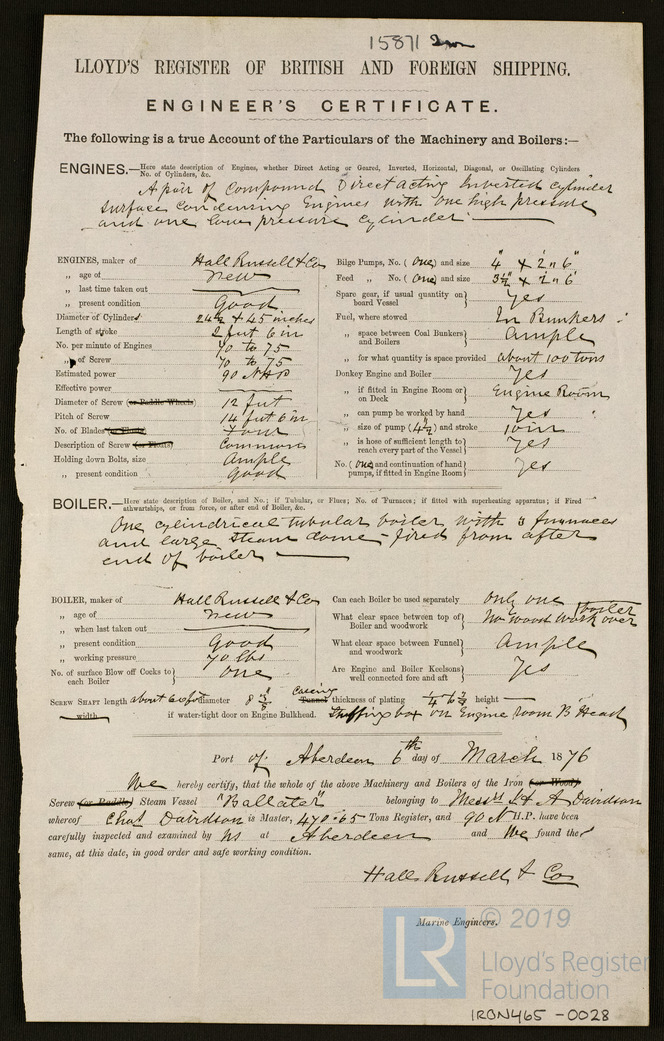 15871 Iron
LLOYD'S REGISTER OF BRITISH AND FOREIGN SHIPPING.
ENGINEER'S CERTIFICATE.
The following is a true Account of the Particulars of the Machinery and Boilers:—
ENGINES.—Here state description of Engines, whether Direct Acting or Geared, Inverted, Horizontal, Diagonal, or Oscillating Cylinders
No. of Cylinders, &c.
A pair of Compound Direct acting Inverted Cylinder
Surface Condensing Engines with one high pressure
and one low pressure cylinder
ENGINES, maker of Hall Russell & Co
„ age of new
„ last time taken out
„ present condition Good
Diameter of Cylinders 24½ & 45 inches
Length of stroke 2 feet 6 in
No. per minute of Engines 70 to 75
„ of Screw 70 to 75
Estimated power 90 NHP
Effective power
Diameter of Screw (or Paddle Wheels) 12 feet
Pitch of Screw 14 feet 6 in
No. of Blades (or Floats) Four
Description of Screw (or Floats) Common
Holding down Bolts, size Ample
„ present condition Good
Bilge Pumps, No. (One) and size 4" × 2' 6"
Feed „ No. (One) and size 3½" × 2' 6"
Spare gear, if usual quantity on board Vessel Yes
Fuel, where stowed In Bunkers
„ space between Coal Bunkers and Boilers Ample
„ for what quantity is space provided about 100 tons
Donkey Engine and Boiler Yes
„ if fitted in Engine Room or on Deck Engine Room
„ can pump be worked by hand Yes
„ size of pump (4½) and stroke 10 in
„ is hose of sufficient length to reach every part of the Vessel Yes
No. (One) and continuation of hand pumps, if fitted in Engine Room Yes
BOILER.—Here state description of Boiler, and No.; if Tubular, or Flues; No. of Furnaces; if fitted with superheating apparatus; if Fired
athwartships, or from fore, or after end of Boiler, &c.
One cylindrical tubular boiler with 3 furnaces
and large steam dome - fired from after
end of boiler
BOILER, maker of Hall Russell & Co
„ age of new
„ when last taken out
„ present condition Good
„ working pressure 70 lbs
No. of surface Blow off Cocks to each Boiler One
Can each Boiler be used separately only one boiler
What clear space between top of Boiler and woodwork No wood work over
What clear space between Funnel and woodwork Ample
Are Engine and Boiler Keelsons well connected fore and aft Yes
SCREW SHAFT length about 60 feet diameter 8 3/8 Casing Tunnel thickness of plating 1/4 to 3/8 height
width if water-tight door on Engine Bulkhead. Stuffing box on Engine room B Head
Port of Aberdeen 6th day of March 1876
We hereby certify, that the whole of the above Machinery and Boilers of the Iron (or Wood)
Screw (or Paddle) Steam Vessel "Ballater" belonging to Messrs J & A Davidson
whereof Chas Davidson is Master, 470.65 Tons Register, and 90 N H.P. have been
carefully inspected and examined by us at Aberdeen and We found the
same, at this date, in good order and safe working condition.
Hall Russell & Co
Marine Engineers.
LR © 2019
Lloyd's Register
Foundation
IRON465-0028